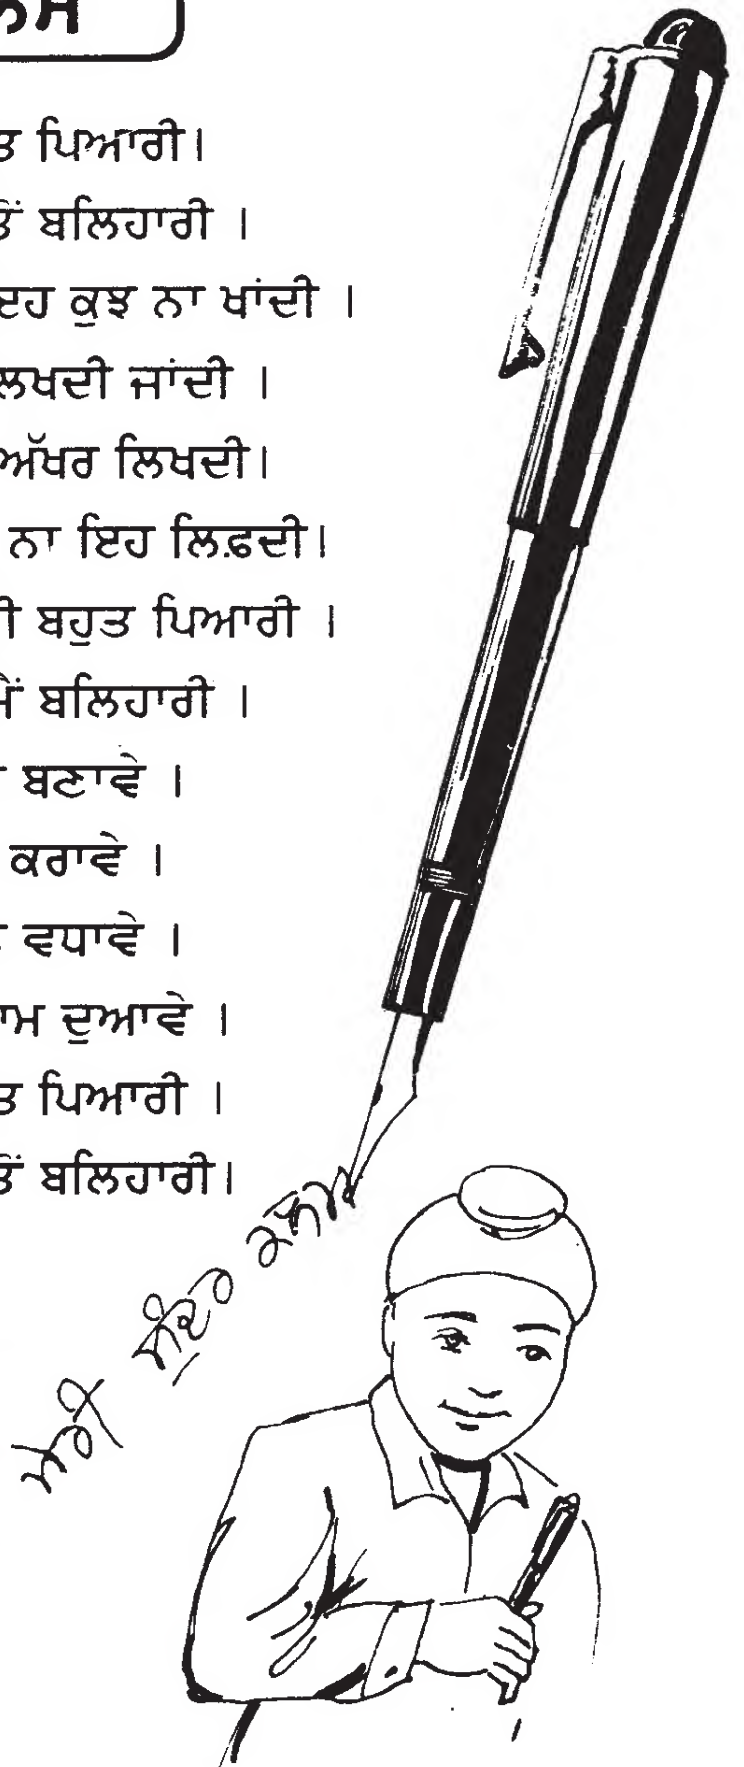 ਪਿਆਰੀ।
ਬਲਿਹਾਰੀ ।
ਇਹ ਕੁਝ ਨਾ ਖਾਂਦੀ ।
ਜਾਂਦੀ ।
ਅੱਖਰ ਲਿਖਦੀ।
ਨਾ ਇਹ ਲਿਫ਼ਦੀ।
ਬਹੁਤ ਪਿਆਰੀ ।
ਬਲਿਹਾਰੀ ।
ਬਣਾਵੇ ।
ਕਰਾਵੇ ।
ਵਧਾਵੇ ।
ਦੁਆਵੇ ।
ਪਿਆਰੀ ।
ਬਲਿਹਾਰੀ।
ਮੇਰੀ ਸੁੰਦਰ ਕਲਮ